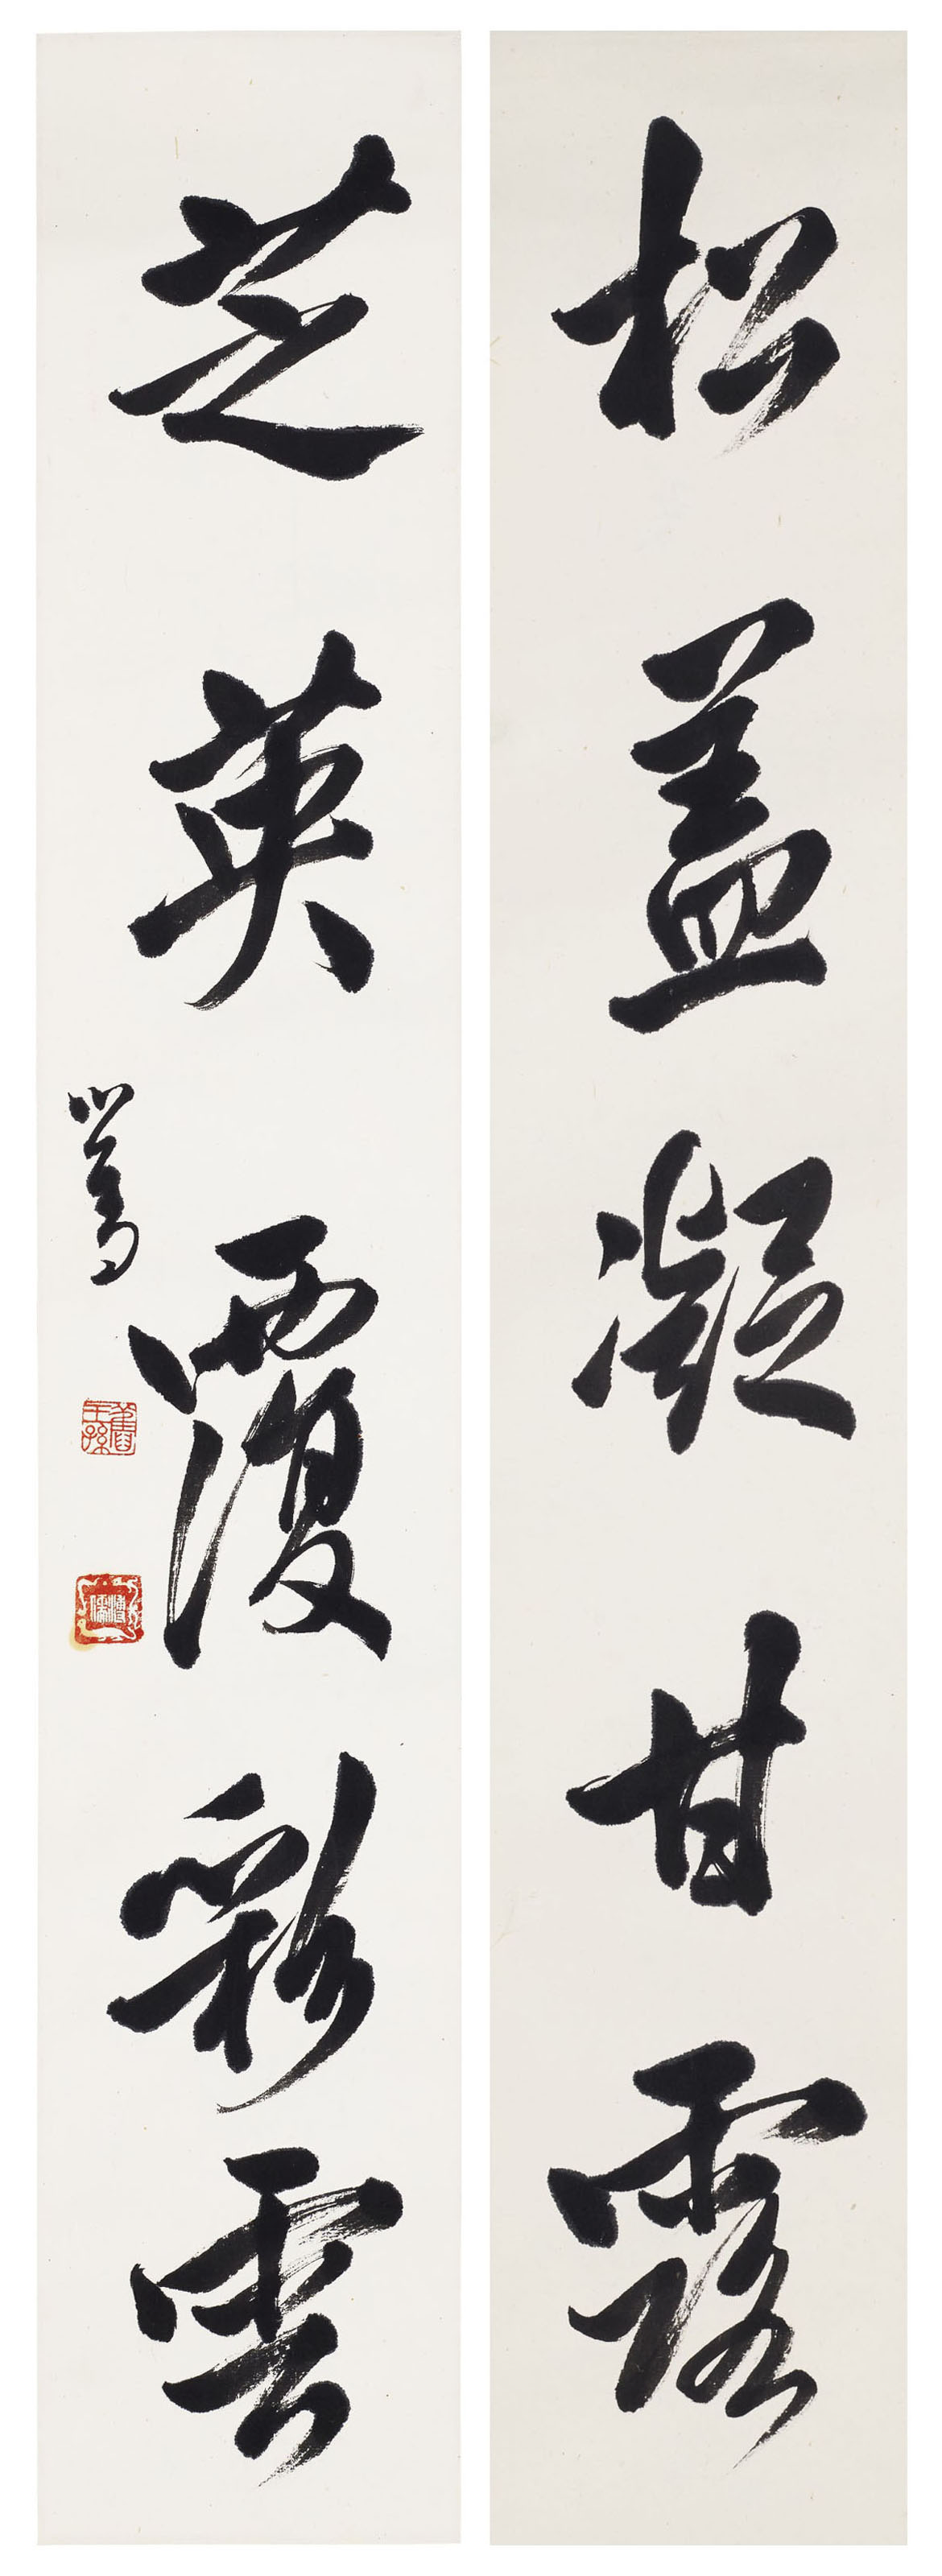 松蓋凝甘露
芝英覆彩雲
心畬
舊王孫
溥儒